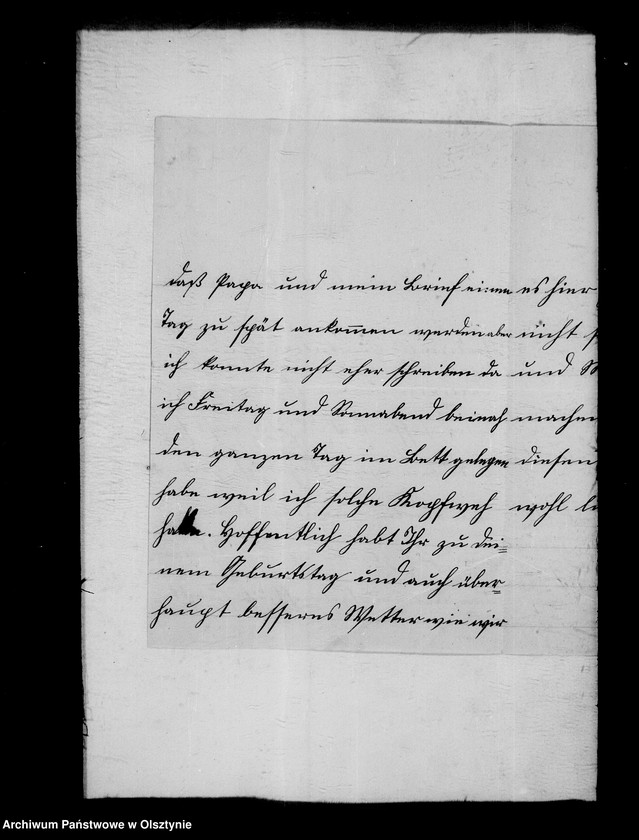 daß Papa und mein Brief einen
Tag zu spät ankommen werden aber
ich konnte nicht eher schreiben da
ich Freitag und Sonnabend beinah
den ganzen Tag im Bett gelegen
habe weil ich solche Kopfweh
hatte. Hoffentlich habt Ihr zu dei=
nem Geburtstag und auch über=
haupt besseres Wetter wie wir
es hier
nicht
und
machen
diesen
wohl
Archiwum Państwowe w Olsztynie